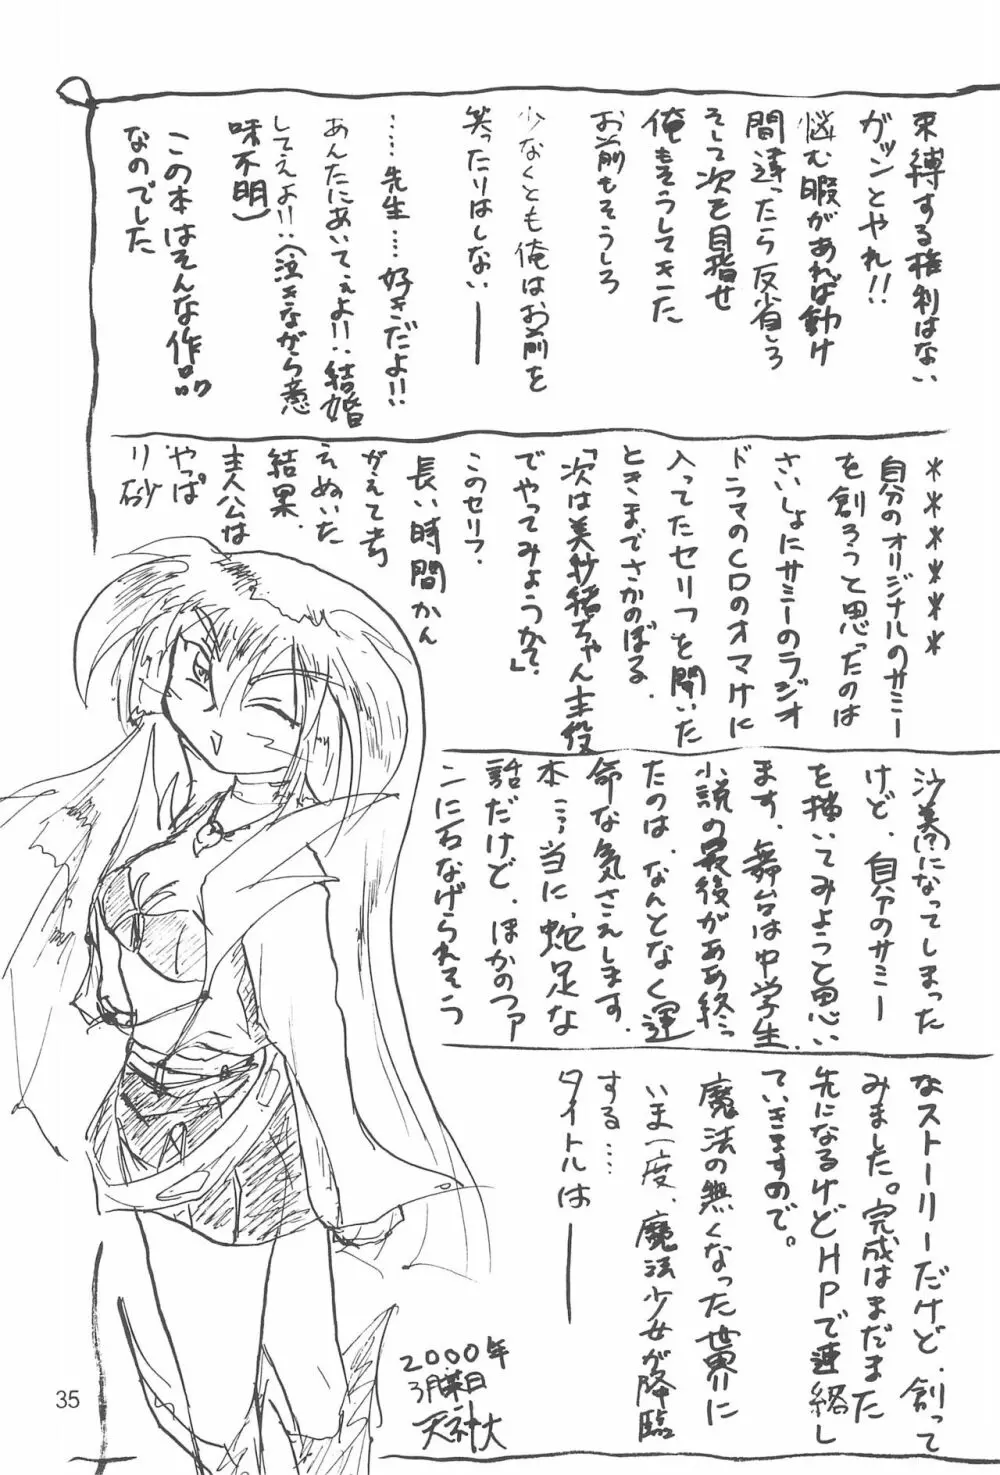 束縛する権利はない
ガツンとやれ!!
悩む暇があれば動け
間違ったら反省しろ
そして次を目指せ
俺もそうしてきた
お前もそうしろ
少なくとも俺はお前を
笑ったりはしない――
……先生…好きだよ!!
あんたにあいてぇよ!!結婚
してえよ!!(泣きながら意
味不明)
この本はそんな作品
なのでした
＊＊＊＊＊
自分のオリジナルのサミー
を創ろうと思ったのは
さいしょにサミーのラジオ
ドラマのCDのオマケに
入ってたセリフを聞いた
ときまでさかのぼる.
「次は美紗緒ちゃん主役
でやってみようかて」
このセリフ.
長い時間かん
がえて考
えぬいた
結果.
主人公は
やっぱ
り砂
沙美になってしまった
けど、自分のサミー
を描いてみようと思い
ます.舞台は中学生.
小説の最後がああ終っ
たのは、なんとなく運
命な気さえします.
本…当に、蛇足な
話だけど、ほかのファ
ンに石なげられそう
なストーリーだけど、創って
みました。完成はまだまた
先になるけどHPで連絡し
ていきますので。
魔法の無くなった世界に
いま一度、魔法少女が降臨
する……
タイトルは――
2000年
3月某日
天神大
35